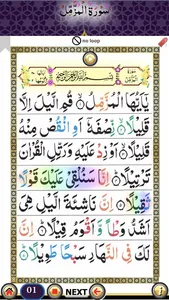 سورة المزمل
no loop
بِسْمِ اللَّهِ الرَّحْمَٰنِ الرَّحِيمِ
يَا أَيُّهَا الْمُزَّمِّلُ ۝ قُمِ اللَّيْلَ إِلَّا
قَلِيلًا ۝ نِصْفَهُ أَوِ انْقُصْ مِنْهُ
قَلِيلًا ۝ أَوْ زِدْ عَلَيْهِ وَرَتِّلِ الْقُرْآنَ
تَرْتِيلًا ۝ إِنَّا سَنُلْقِي عَلَيْكَ قَوْلًا
ثَقِيلًا ۝ إِنَّ نَاشِئَةَ اللَّيْلِ هِيَ
أَشَدُّ وَطْئًا وَأَقْوَمُ قِيلًا ۝ إِنَّ
لَكَ فِي النَّهَارِ سَبْحًا طَوِيلًا ۝
01 NEXT